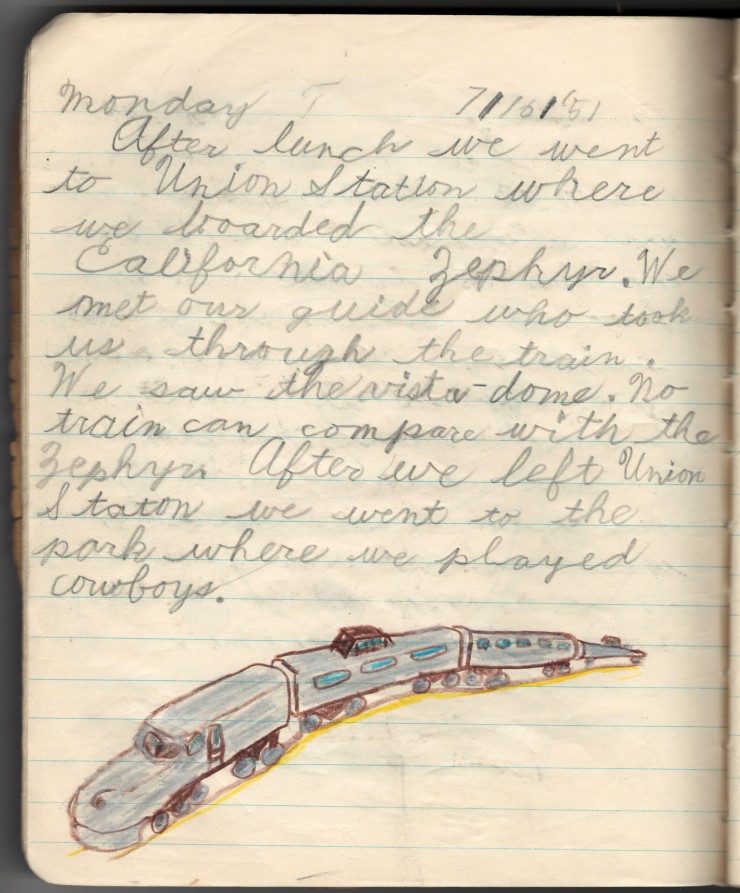 Monday T 7/16/51
After lunch we went
to Union Station where
we boarded the
California Zephyr. We
met our guide who took
us through the train.
We saw the vista-dome. No
train can compare with the
Zephyr. After we left Union
Staton we went to the
park where we played
cowboys.